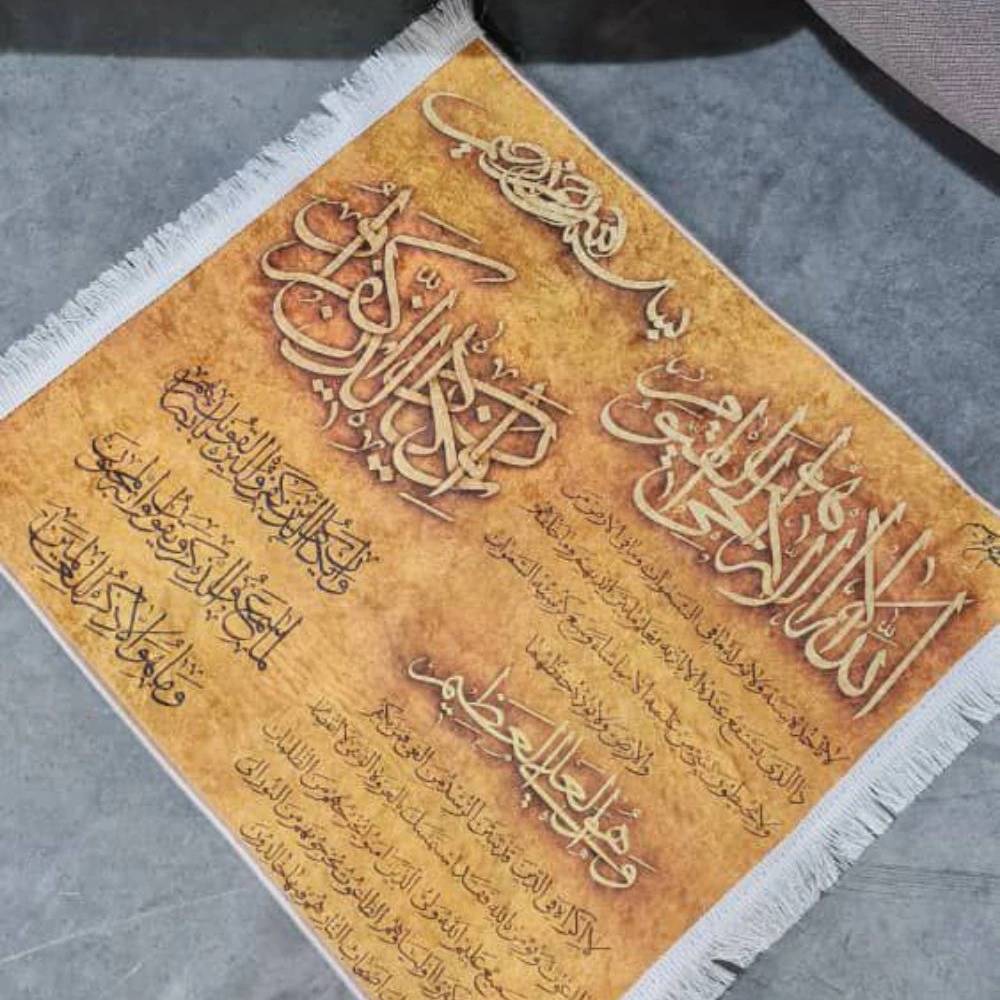 بسم الله الرحمن الرحيم
الله لا اله الا هو الحي القيوم
لا تأخذه سنة ولا نوم له ما في السموات وما في الارض من
ذا الذي يشفع عنده الا باذنه يعلم ما بين ايديهم وما خلفهم
ولا يحيطون بشيء من علمه الا بما شاء وسع كرسيه السموات
والارض ولا يؤده حفظهما
وهو العلي العظيم
لا اكراه في الدين قد تبين الرشد من الغي فمن يكفر
بالطاغوت ويؤمن بالله فقد استمسك بالعروة الوثقى لا انفصام
سميع عليم الله ولي الذين امنوا يخرجهم من الظلمات
كفروا اولياؤهم الطاغوت يخرجونهم من النور الى
اصحاب النار هم فيها خالدون
وان يكاد الذين كفروا ليزلقونك بابصارهم
لما سمعوا الذكر ويقولون انه لمجنون
وما هو الا ذكر للعالمين